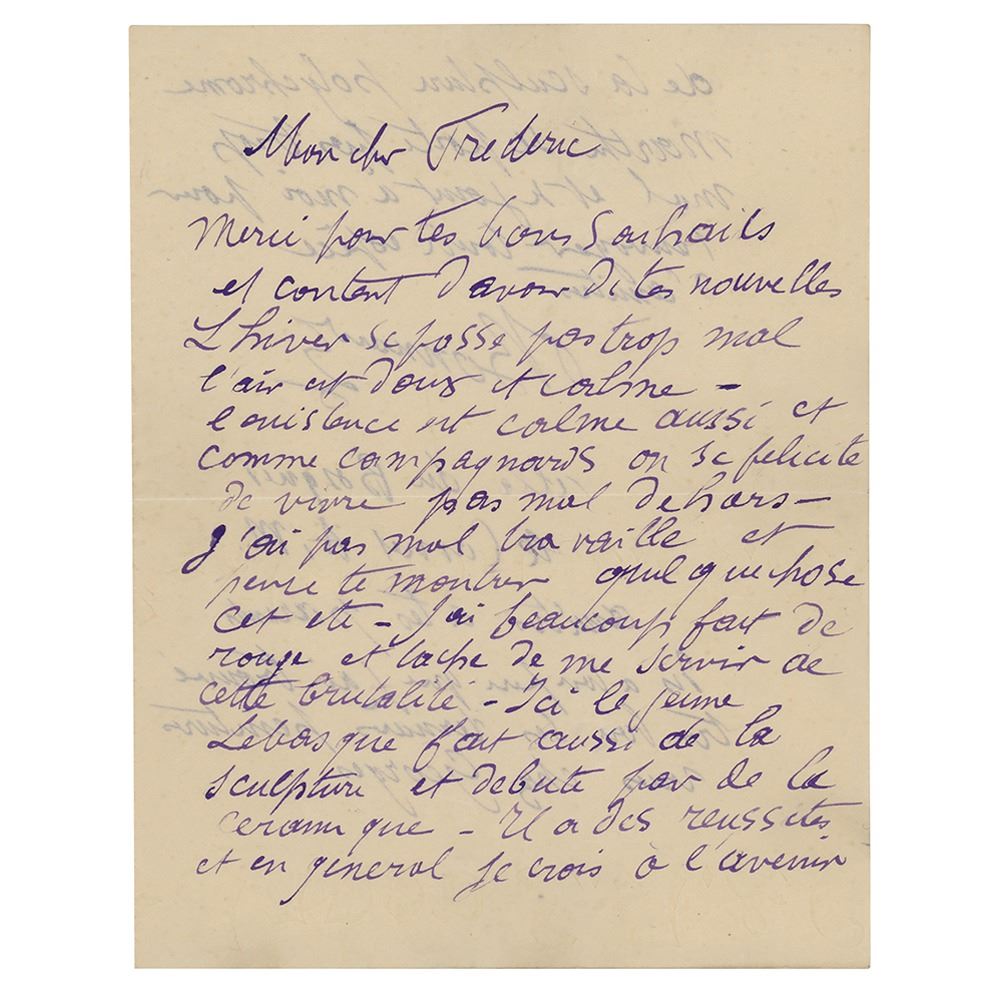 Mon cher Frederic
Merci pour tes bons Souhaits
et content d'avoir de tes nouvelles
L hiver se passe pas trop mal
l'air est doux et calme –
l existence est calme aussi et
comme campagnards on se felicite
de vivre pas mal dehors –
J'ai pas mal travaille et
pense te montrer quelque chose
cet ete – J'ai beaucoup fait de
rouge et tache de me servir de
cette brutalité – Ici le jeune
Lebasque fait aussi de la
sculpture et debute par de la
ceramique – Il a des reussites
et en general je crois à l'avenir